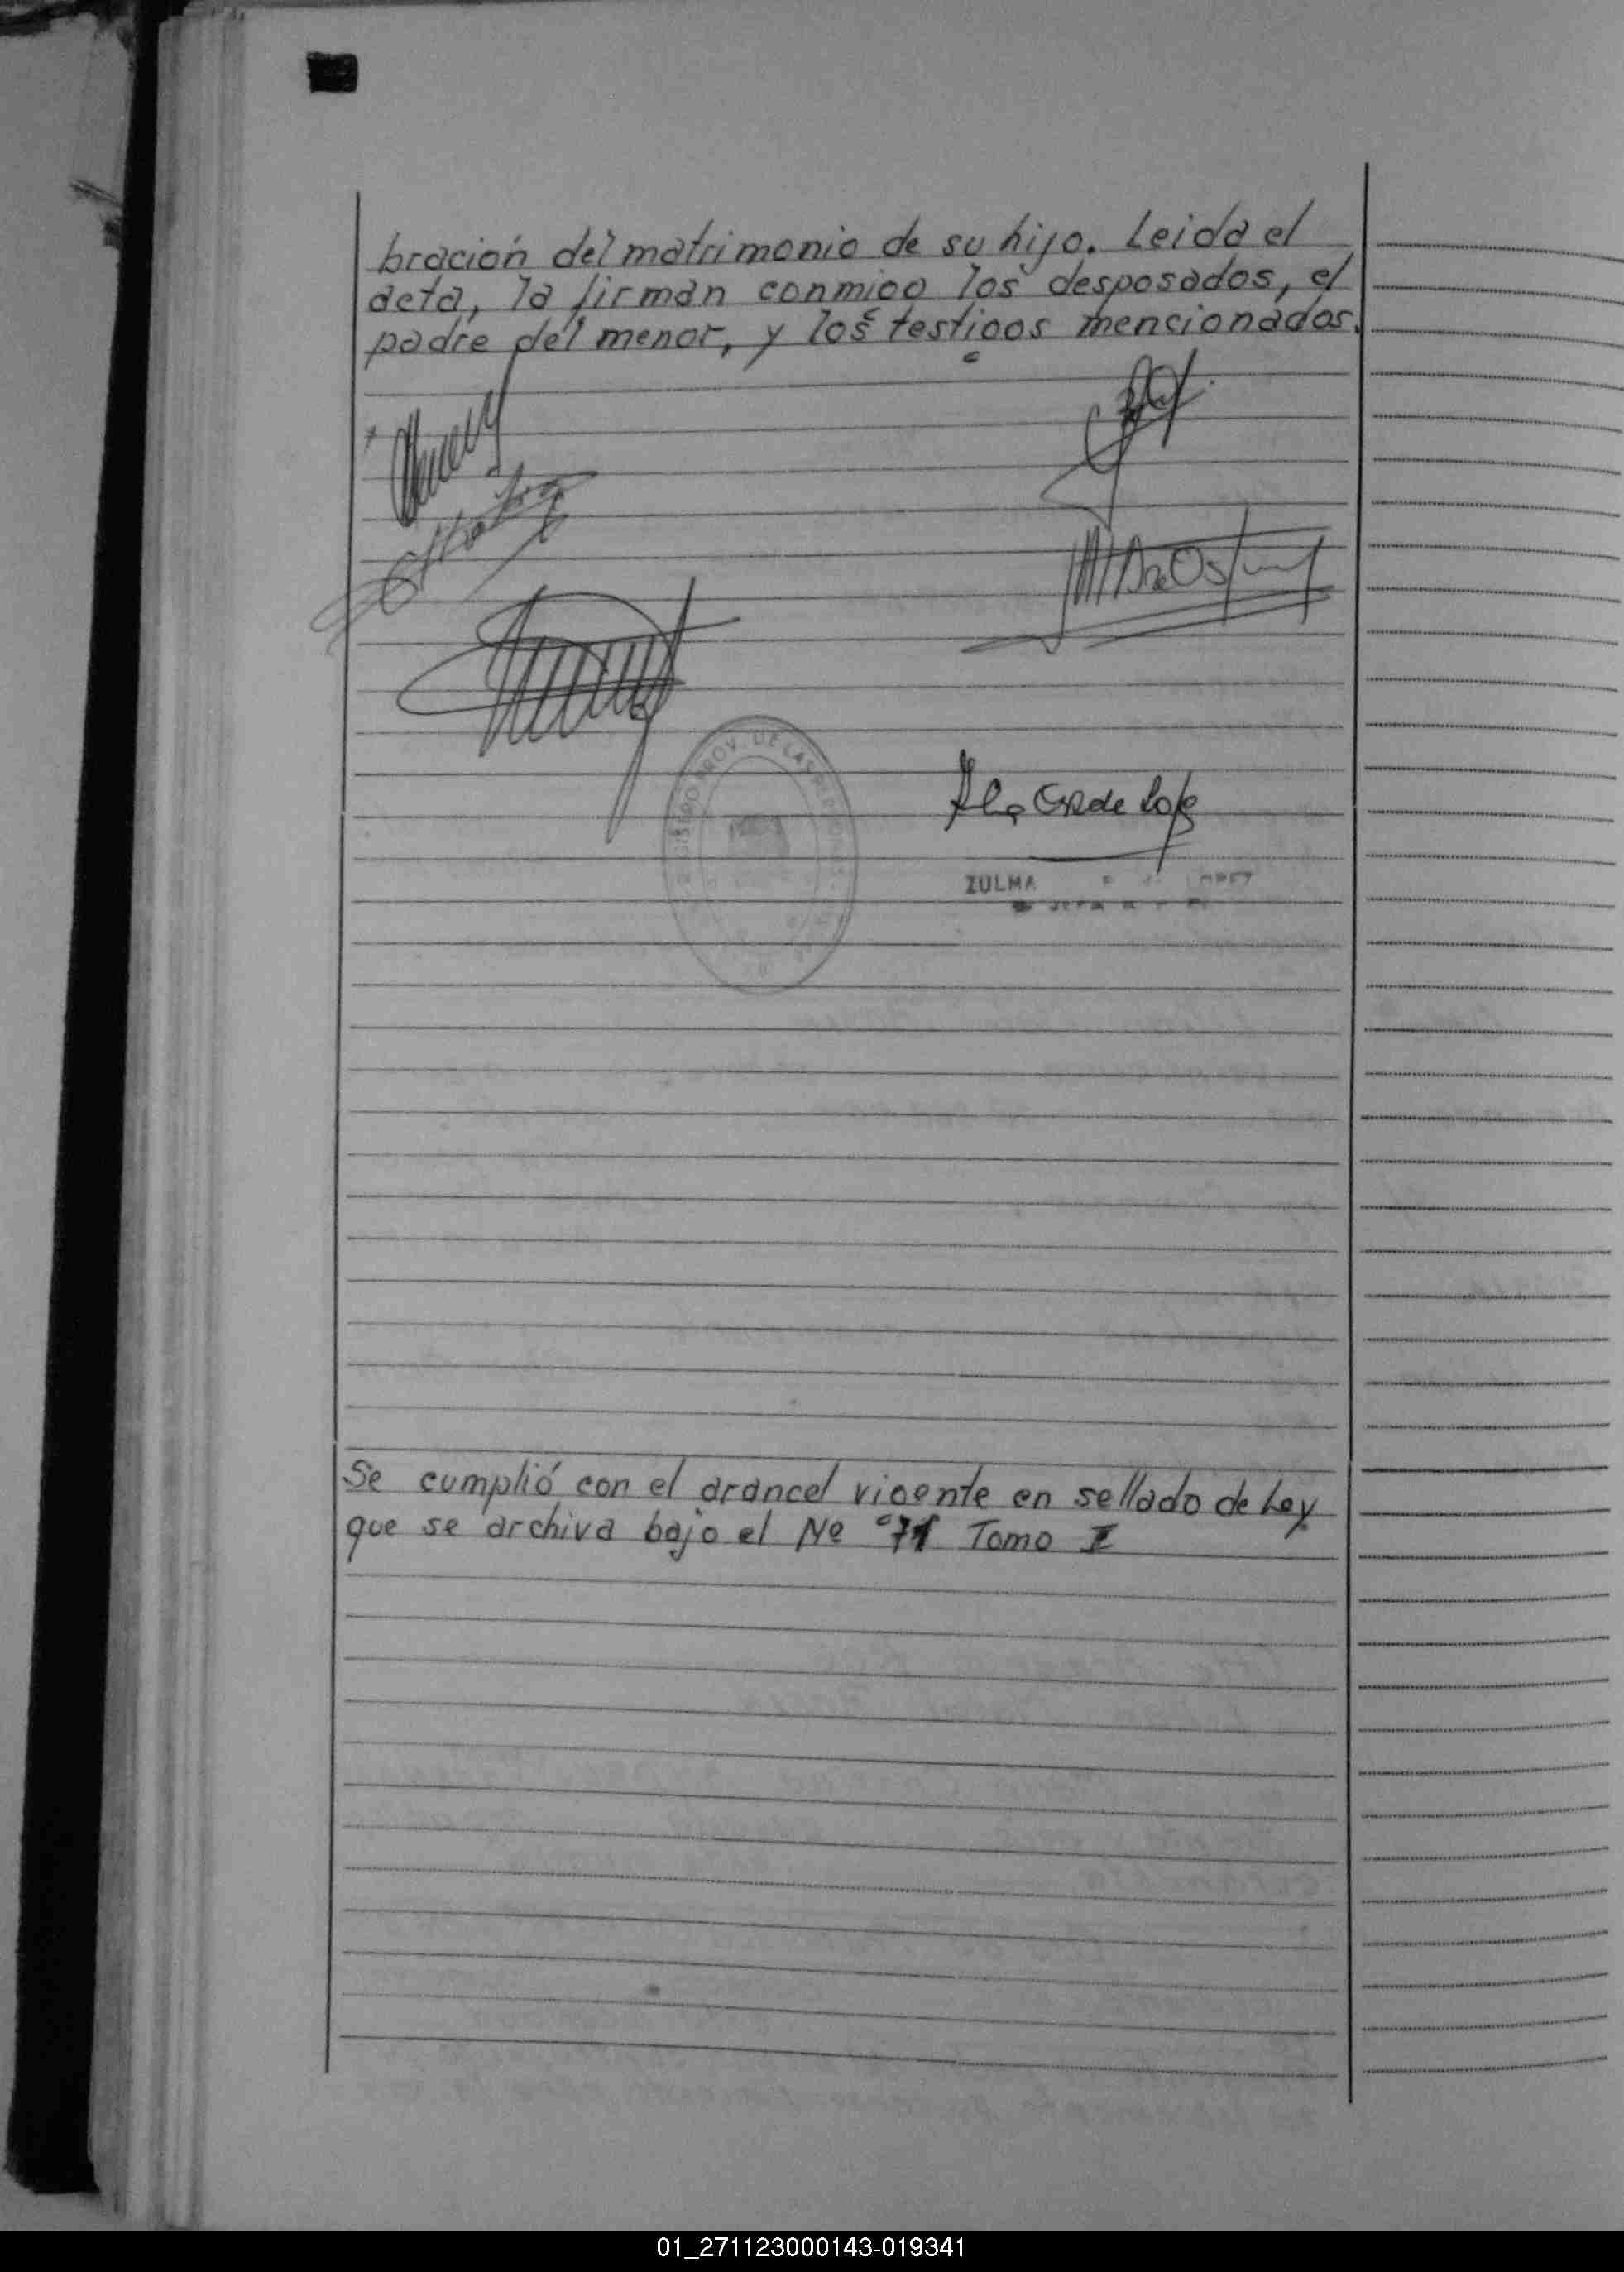 bración del matrimonio de su hijo. Leida el
acta, la firman conmigo los desposados, el
padre del menor, y los testigos mencionados.
ZULMA LOPEZ
Se cumplió con el arancel vigente en sellado de Ley
que se archiva bajo el Nº 71 Tomo I
01_271123000143-019341